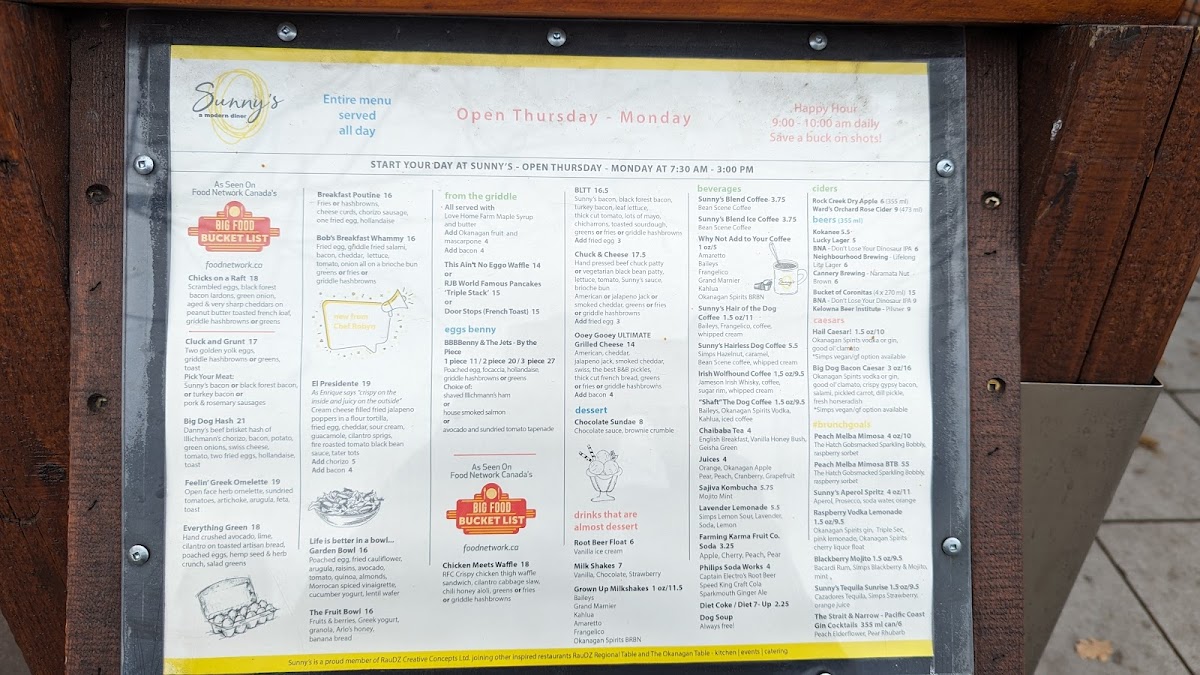 Sunny's
a modern diner
Entire menu
served
all day
Open Thursday - Monday
Happy Hour
9:00 - 10:00 am daily
Save a buck on shots!
START YOUR DAY AT SUNNY'S - OPEN THURSDAY - MONDAY AT 7:30 AM - 3:00 PM
As Seen On
Food Network Canada's
BIG FOOD
BUCKET LIST
foodnetwork.ca
Chicks on a Raft 18
Scrambled eggs, black forest
bacon lardons, green onion,
aged & very sharp cheddars on
peanut butter toasted french loaf,
griddle hashbrowns or greens
Cluck and Grunt 17
Two golden yolk eggs,
griddle hashbrowns or greens,
toast
Pick Your Meat:
Sunny's bacon or black forest bacon,
or turkey bacon or
pork & rosemary sausages
Big Dog Hash 21
Danny's beef brisket hash of
Illichmann's chorizo, bacon, potato,
green onions, swiss cheese,
tomato, two fried eggs, hollandaise,
toast
Feelin' Greek Omelette 19
Open face herb omelette, sundried
tomatoes, artichoke, arugula, feta,
toast
Everything Green 18
Hand crushed avocado, lime,
cilantro on toasted artisan bread,
poached eggs, hemp seed & herb
crunch, salad greens
Breakfast Poutine 16
Fries or hashbrowns,
cheese curds, chorizo sausage,
one fried egg, hollandaise
Bob's Breakfast Whammy 16
Fried egg, griddle fried salami,
bacon, cheddar, lettuce,
tomato, onion all on a brioche bun
greens or fries or
griddle hashbrowns
new from
Chef Robyn
El Presidente 19
As Enrique says "crispy on the
inside and juicy on the outside"
Cream cheese filled fried jalapeno
poppers in a flour tortilla,
fried egg, cheddar, sour cream,
guacamole, cilantro sprigs,
fire roasted tomato black bean
sauce, tater tots
Add chorizo 5
Add bacon 4
Life is better in a bowl...
Garden Bowl 16
Poached egg, fried cauliflower,
arugula, raisins, avocado,
tomato, quinoa, almonds,
Morrocan spiced vinaigrette,
cucumber yogurt, lentil wafer
The Fruit Bowl 16
Fruits & berries, Greek yogurt,
granola, Arlo's honey,
banana bread
from the griddle
All served with
Love Home Farm Maple Syrup
and butter
Add Okanagan fruit and
mascarpone 4
Add bacon 4
This Ain't No Eggo Waffle 14
or
RJB World Famous Pancakes
'Triple Stack' 15
or
Door Stops (French Toast) 15
eggs benny
BBBBenny & The Jets - By the
Piece
1 piece 11 / 2 piece 20 / 3 piece 27
Poached egg, focaccia, hollandaise,
griddle hashbrowns or greens
Choice of:
shaved Illichmann's ham
or
house smoked salmon
or
avocado and sundried tomato tapenade
As Seen On
Food Network Canada's
BIG FOOD
BUCKET LIST
foodnetwork.ca
Chicken Meets Waffle 18
RFC Crispy chicken thigh waffle
sandwich, cilantro cabbage slaw,
chili honey aioli, greens or fries
or griddle hashbrowns
BLTT 16.5
Sunny's bacon, black forest bacon,
turkey bacon, leaf lettuce,
thick cut tomato, lots of mayo,
chicharrons, toasted sourdough,
greens or fries or griddle hashbrowns
Add fried egg 3
Chuck & Cheese 17.5
Hand pressed beef chuck patty
or vegetarian black bean patty,
lettuce, tomato, Sunny's sauce,
brioche bun
American or jalapeno jack or
smoked cheddar, greens or fries
or griddle hashbrowns
Add fried egg 3
Ooey Gooey ULTIMATE
Grilled Cheese 14
American, cheddar,
jalapeno jack, smoked cheddar,
swiss, the best B&B pickles,
thick cut french bread, greens
or fries or griddle hashbrowns
Add bacon 4
dessert
Chocolate Sundae 8
Chocolate sauce, brownie crumble
drinks that are
almost dessert
Root Beer Float 6
Vanilla ice cream
Milk Shakes 7
Vanilla, Chocolate, Strawberry
Grown Up Milkshakes 1 oz/11.5
Baileys
Grand Marnier
Kahlua
Amaretto
Frangelico
Okanagan Spirits BRBN
beverages
Sunny's Blend Coffee 3.75
Bean Scene Coffee
Sunny's Blend Ice Coffee 3.75
Bean Scene Coffee
Why Not Add to Your Coffee
1 oz/5
Amaretto
Baileys
Frangelico
Grand Marnier
Kahlua
Okanagan Spirits BRBN
Sunny's Hair of the Dog
Coffee 1.5 oz/11
Baileys, Frangelico, coffee,
whipped cream
Sunny's Hairless Dog Coffee 5.5
Simps Hazelnut, caramel,
Bean Scene coffee, whipped cream
Irish Wolfhound Coffee 1.5 oz/9.5
Jameson Irish Whisky, coffee,
sugar rim, whipped cream
"Shaft" The Dog Coffee 1.5 oz/9.5
Baileys, Okanagan Spirits Vodka,
Kahlua, iced coffee
Chaibaba Tea 4
English Breakfast, Vanilla Honey Bush,
Geisha Green
Juices 4
Orange, Okanagan Apple
Pear, Peach, Cranberry, Grapefruit
Sajiva Kombucha 5.75
Mojito Mint
Lavender Lemonade 5.5
Simps Lemon Sour, Lavender,
Soda, Lemon
Farming Karma Fruit Co.
Soda 3.25
Apple, Cherry, Peach, Pear
Philips Soda Works 4
Captain Electro's Root Beer
Speed King Craft Cola
Sparkmouth Ginger Ale
Diet Coke / Diet 7- Up 2.25
Dog Soup
Always free!
ciders
Rock Creek Dry Apple 6 (355 ml)
Ward's Orchard Rose Cider 9 (473 ml)
beers (355 ml)
Kokanee 5.5
Lucky Lager 5
BNA - Don't Lose Your Dinosaur IPA 6
Neighbourhood Brewing - Lifelong
Lite Lager 6
Cannery Brewing - Naramata Nut
Brown 6
Bucket of Coronitas (4 x 270 ml) 15
BNA - Don't Lose Your Dinosaur IPA 9
Kelowna Beer Institute - Pilsner 9
caesars
Hail Caesar! 1.5 oz/10
Okanagan Spirits vodka or gin,
good ol' clamato
*Simps vegan/gf option available
Big Dog Bacon Caesar 3 oz/16
Okanagan Spirits vodka or gin,
good ol' clamato, crispy gypsy bacon,
salami, pickled carrot, dill pickle,
fresh horseradish
*Simps vegan/gf option available
#brunchgoals
Peach Melba Mimosa 4 oz/10
The Hatch Gobsmacked Sparkling Bobbly,
raspberry sorbet
Peach Melba Mimosa BTB 55
The Hatch Gobsmacked Sparkling Bobbly,
raspberry sorbet
Sunny's Aperol Spritz 4 oz/11
Aperol, Prosecco, soda water, orange
Raspberry Vodka Lemonade
1.5 oz/9.5
Okanagan Spirits gin, Triple Sec,
pink lemonade, Okanagan Spirits
cherry liquor float
Blackberry Mojito 1.5 oz/9.5
Bacardi Rum, Simps Blackberry & Mojito,
mint,
Sunny's Tequila Sunrise 1.5 oz/9.5
Cazadores Tequila, Simps Strawberry,
orange juice
The Strait & Narrow - Pacific Coast
Gin Cocktails 355 ml can/6
Peach Elderflower, Pear Rhubarb
Sunny's is a proud member of RauDZ Creative Concepts Ltd. joining other inspired restaurants RauDZ Regional Table and The Okanagan Table - kitchen | events | catering